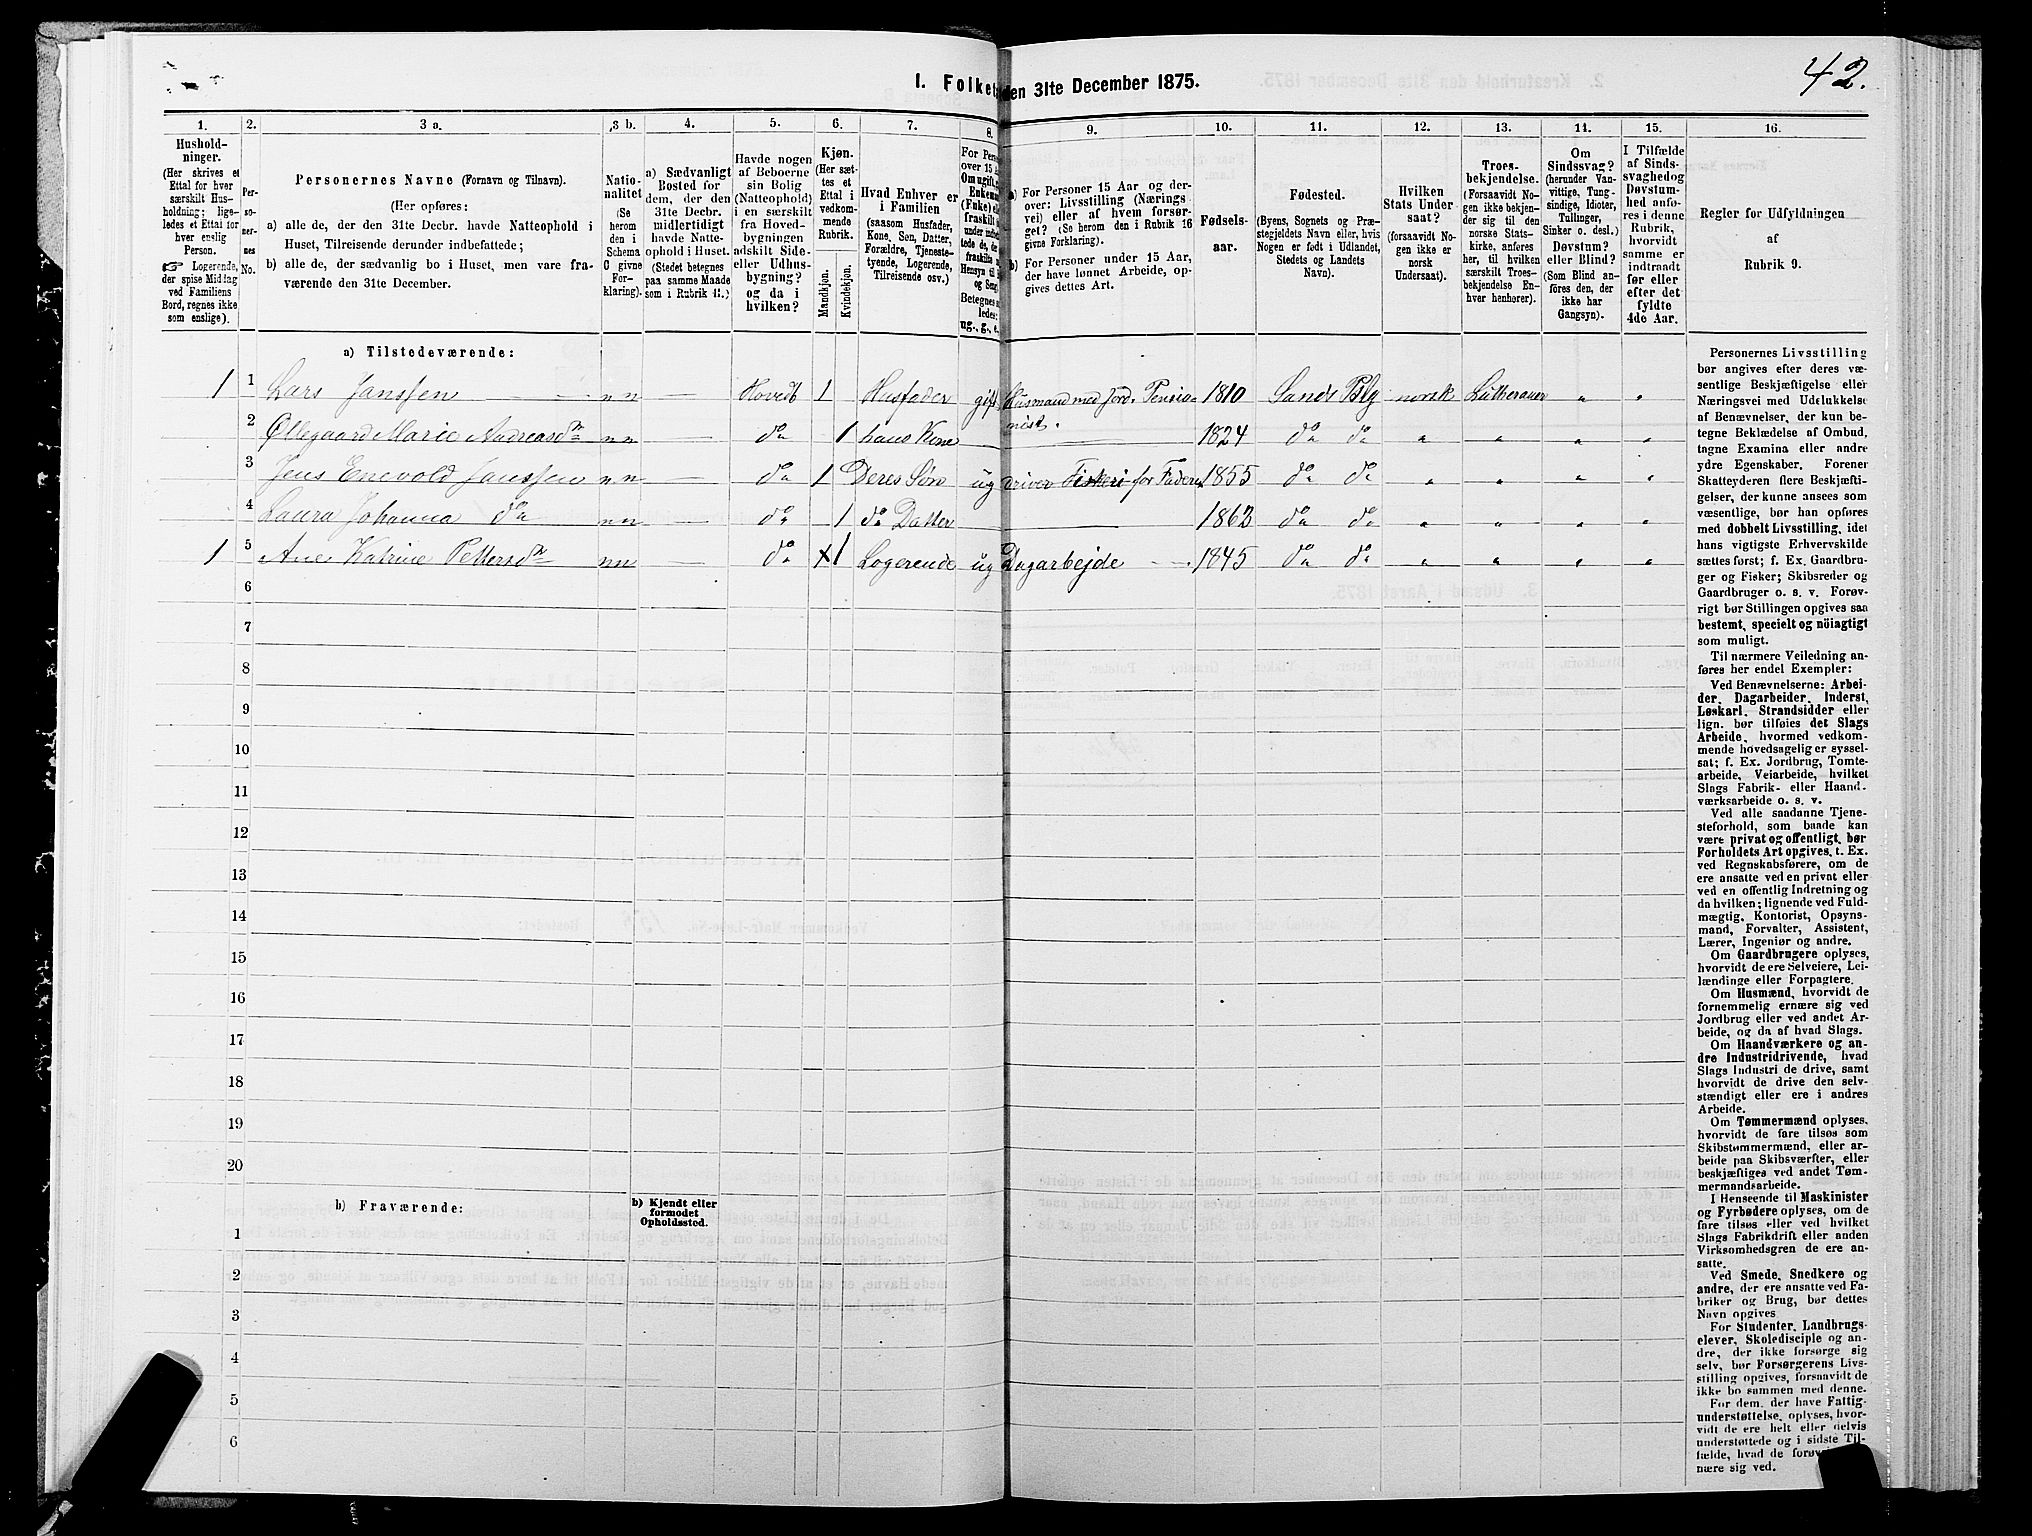 42.
1. Folket den 31te December 1875.
1. 2. 3 a. 3 b. 4. 5. 6. 7. 8. 9. 10. 11. 12. 13. 14. 15. 16.
Hushold-
ninger.
(Her skrives et
Ettal for hver
særskilt Hus-
holdning; lige-
ledes et Ettal for
hver enslig
Person.
☞ Logerende,
der spise Middag
ved Familiens
Bord, regnes ikke
som enslige).
Per-
so-
ner-
nes
No.
Personernes Navne (Fornavn og Tilnavn).
(Her opføres:
a) alle de, der den 31te Decbr. havde Natteophold i
Huset, Tilreisende derunder indbefattede;
b) alle de, der sædvanlig bo i Huset, men vare fra-
værende den 31te December.
Natio-
nalitet
(Se
herom
den i
Schema
C givne
For-
klaring).
a) Sædvanligt
Bosted for
dem, der den
31te Decbr.
midlertidigt
havde Natte-
ophold i Huset.
(Stedet betegnes
paa samme Maade
som i Rubrik 11.)
Havde nogen
af Beboerne
sin Bolig
(Natteophold)
i en særskilt
fra Hoved-
bygningen
adskilt Side-
eller Udhus-
bygning?
og da i
hvilken?
Kjøn.
(Her sæt-
tes et
Ettal i
vedkom-
mende
Rubrik.
Mandkjøn.
Kvindekjøn.
Hvad Enhver er
i Familien
(saasom Husfader,
Kone, Søn, Datter,
Forældre, Tjeneste-
tyende, Logerende,
Tilreisende osv.)
For Pers
over 15 A
Om ugift, g
Enkema
(Fuke) e
fraskilt
under indbe
tede de, de
fraskilte
Hensyn til
og Seng.
Betegnes s
ledes:
ug., g., e.
a) For Personer 15 Aar og der-
over: Livsstilling (Nærings
vei) eller af hvem forsør-
get? (Se herom den i Rubrik 16
givne Forklaring).
b) For Personer under 15 Aar,
der have lønnet Arbeide, op-
gives dettes Art.
Fødsels-
aar.
Fødested.
(Byens, Sognets og Præ-
stegjeldets Navn eller, hvis
Nogen er født i Udlandet,
Stedets og Landets
Navn).
Hvilken
Stats Under
saat?
(forsaavidt No-
gen ikke er
norsk
Undersaat).
Troes-
bekjendelse.
(Forsaavidt No-
gen ikke bekjen-
der sig til den
norske Stats-
kirke, anføres
her, til hvilken
særskilt Troes-
bekjendelse En-
hver henhører).
Om
Sindssvag?
(herunder Van-
vittige, Tung-
sindige, Idioter,
Tullinger,
Sinker o. desl.)
Døvstum?
eller Blind?
(Som Blind an-
föres den, der
ikke har
Gangsyn).
I Tilfælde
af Sinds-
svaghedog
Døvstum-
hed anfø-
res i denne
Rubrik,
hvorvidt
samme er
indtraadt
før eller
efter det
fyldte
4de Aar.
Regler for Udfyldningen
af
Rubrik 9.
a) Tilstedeværende:
1 1 Lars Janssen nn — Hovedb 1 Husfader gift Husmand med Jord. Pensio- 1810 Sands Pslg norsk Lutheraner " "
nist.
2 Øllegaard Marie Andreasdr nn — do 1 hans Kone — 1824 do do " " " "
3 Jens Enevold Janssen nn — do 1 Deres Søn ug driver Fiskeri for Faderen 1855 do do " " " "
4 Laura Johanna do nn — do 1 do Datter — 1862 do do " " " "
1 5 Ane Katrine Pettersdr nn — do x 1 Logerende ug Dagarbejde — 1845 do do " " " "
6
7
8
9
10
11
12
13
14
15
16
17
18
19
20
b) Fraværende:
b) Kjendt eller
formodet
Opholdssted.
1
2
3
4
5
6
Personernes Livsstilling
bør angives efter deres væ-
sentlige Beskjæftigelse eller
Næringsvei med Udelukkelse
af Benævnelser, der kun be-
tegne Beklædelse af Ombud,
tagne Examina eller andre
ydre Egenskaber. Forener
Skatteyderen flere Beskjæfti-
gelser, der kunne ansees som
væsentlige, bør han opføres
med dobbelt Livsstilling, idet
hans vigtigste Erhvervskilde
sættes først; f. Ex. Gaardbru-
ger og Fisker; Skibsreder og
Gaardbruger o. s. v. Forøv-
rigt bør Stillingen opgives saa
bestemt, specielt og nöiagtigt
som muligt.
Til nærmere Veiledning an-
føres her endel Exempler:
Ved Benævnelserne: Arbei-
der, Dagarbeider, Inderst,
Løskarl, Strandsidder eller
lign. bør tilføies det Slags
Arbeide, hvormed vedkom-
mende hovedsagelig er syssel-
sat; f. Ex. Jordbrug, Tomte-
arbeide, Veiarbeide, hvilket
Slags Fabrik- eller Haand-
værksarbeide o. s. v.
Ved alle saadanne Tjene-
steforhold, som baade kan
være privat og offentligt, bør
Forholdets Art opgives, t. Ex.
ved Regnskabsførere, om de
ere ansatte ved en privat eller
ved en offentlig Indretning og
da hvilken; lignende ved Fuld-
mægtig, Kontorist, Opsyns-
mand, Forvalter, Assistent,
Lærer, Ingeniør og andre.
Om Gaardbrugere oplyses,
hvorvidt de ere Selveiere, Lei-
lændinge eller Forpagtere.
Om Husmænd, hvorvidt de
fornemmelig ernære sig ved
Jordbrug eller ved andet Ar-
beide, og da af hvad Slags.
Om Haandværkere og an-
dre Industridrivende, hvad
Slags Industri de drive, samt
hvorvidt de drive den selv-
stændigt eller ere i andres
Arbeide.
Om Tømmermænd oplyses,
hvorvidt de fare tilsøs som
Skibstømmermænd, eller ar-
beide paa Skibsværfter, eller
beskjæftiges ved andet Tøm-
mermandsarbeide.
I Henseende til Maskinister
og Fyrbødere oplyses, om de
fare tilsøs eller ved hvilket
Slags Fabrikdrift eller anden
Virksomhedsgren de ere an-
satte.
Ved Smede, Snedkere og
andre, der ere ansatte ved Fa-
briker og Brug, bør dettes
Navn opgives
For Studenter, Landbrugs-
elever, Skoledisciple og an-
dre, der ikke forsørge sig
selv, bør Forsørgerens Livs-
stilling opgives, forsaavidt de
ikke bo sammen med denne.
For dem, der have Fattig-
understøttelse, oplyses, hvor-
vidt de ere helt eller delvis
understøttede og i sidste Til-
fælde, hvad de forøv
nære sig ved.